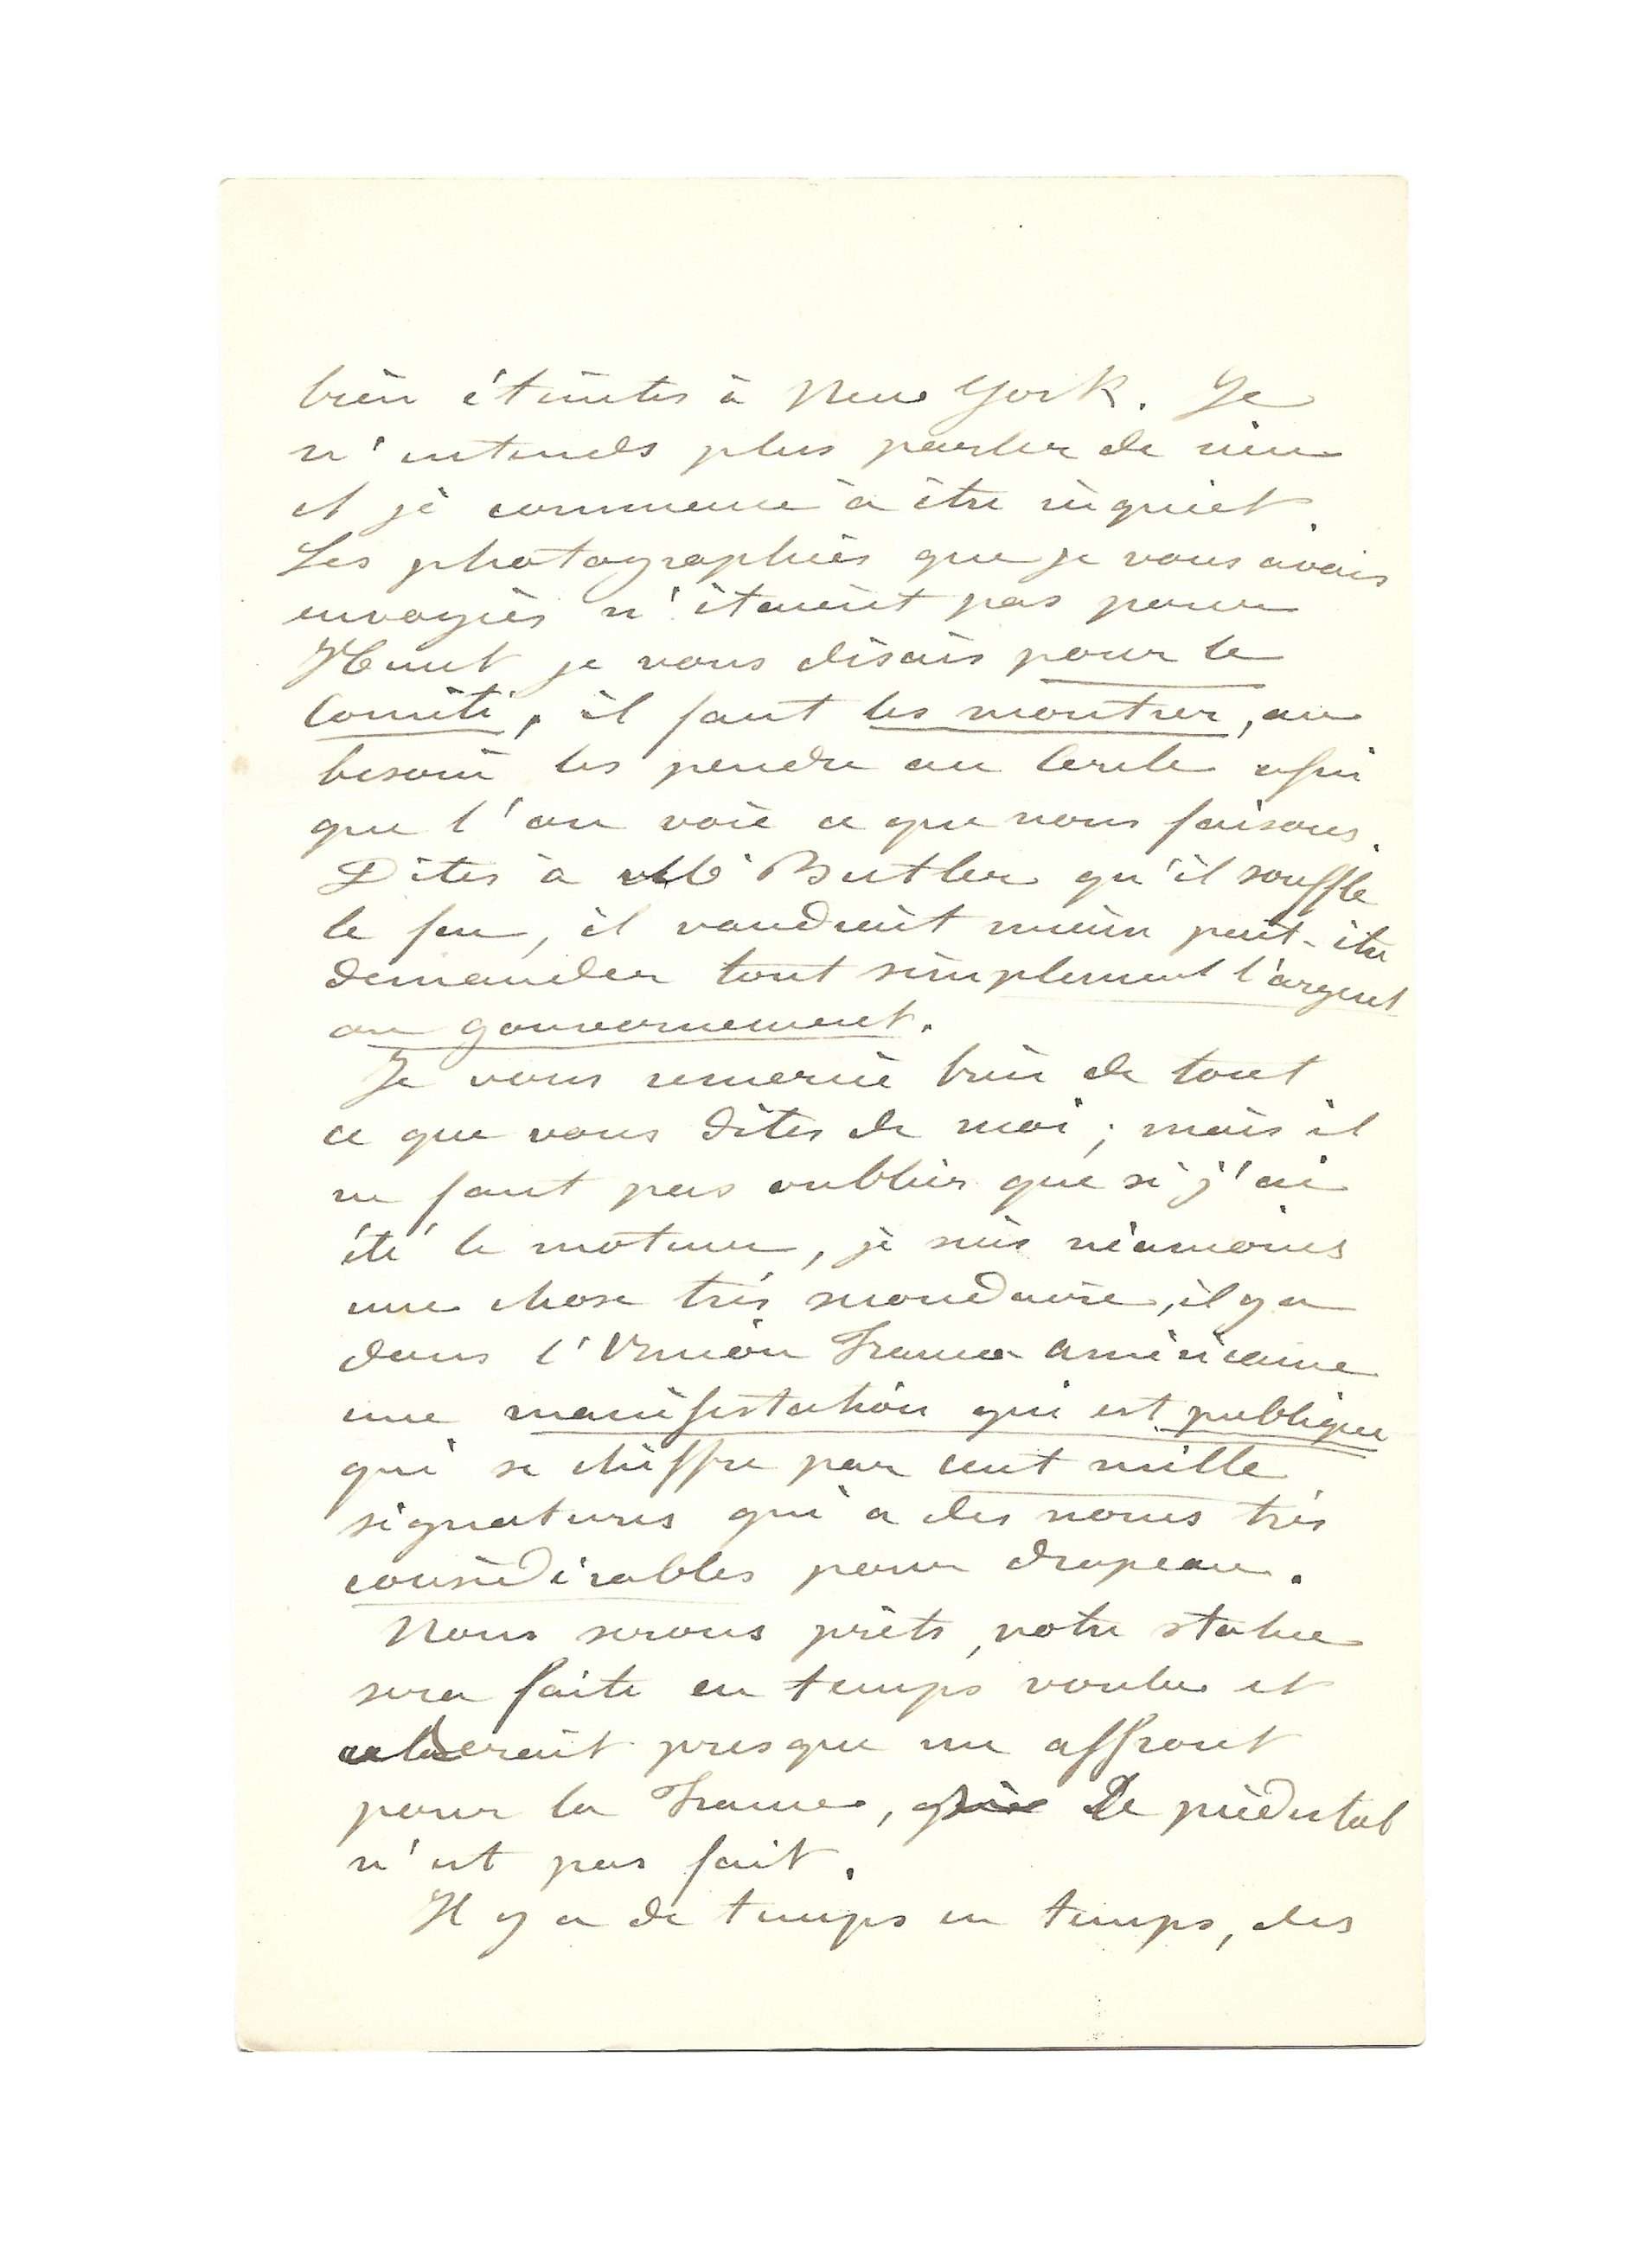 bien éteintes à New York. Je
n'entends plus parler de rien
et je commence à être inquiet.
Les photographies que je vous avais
envoyées n'étaient pas pour
Hunt je vous disais pour le
Comité, il faut les montrer, au
besoin les pendre au Cercle afin
que l'on voie ce que nous faisons.
Dites à Mr Butler qu'il souffle
le feu, il vaudrait mieux peut-être
demander tout simplement l'argent
au gouvernement.
Je vous remercie bien de tout
ce que vous dites de moi ; mais il
ne faut pas oublier que si j'ai
été le moteur, je suis néamoins
une chose très secondaire, il y a
dans l'Union Franco américaine
une manifestation qui est publique
qui se chiffre par cent mille
signatures qui a des noms très
considérables pour drapeau.
Nous serons prêts, votre statue
sera faite en temps voulu et
ce serait presque un affront
pour la France, si le piédestal
n'est pas fait.
Il y a de temps en temps, des